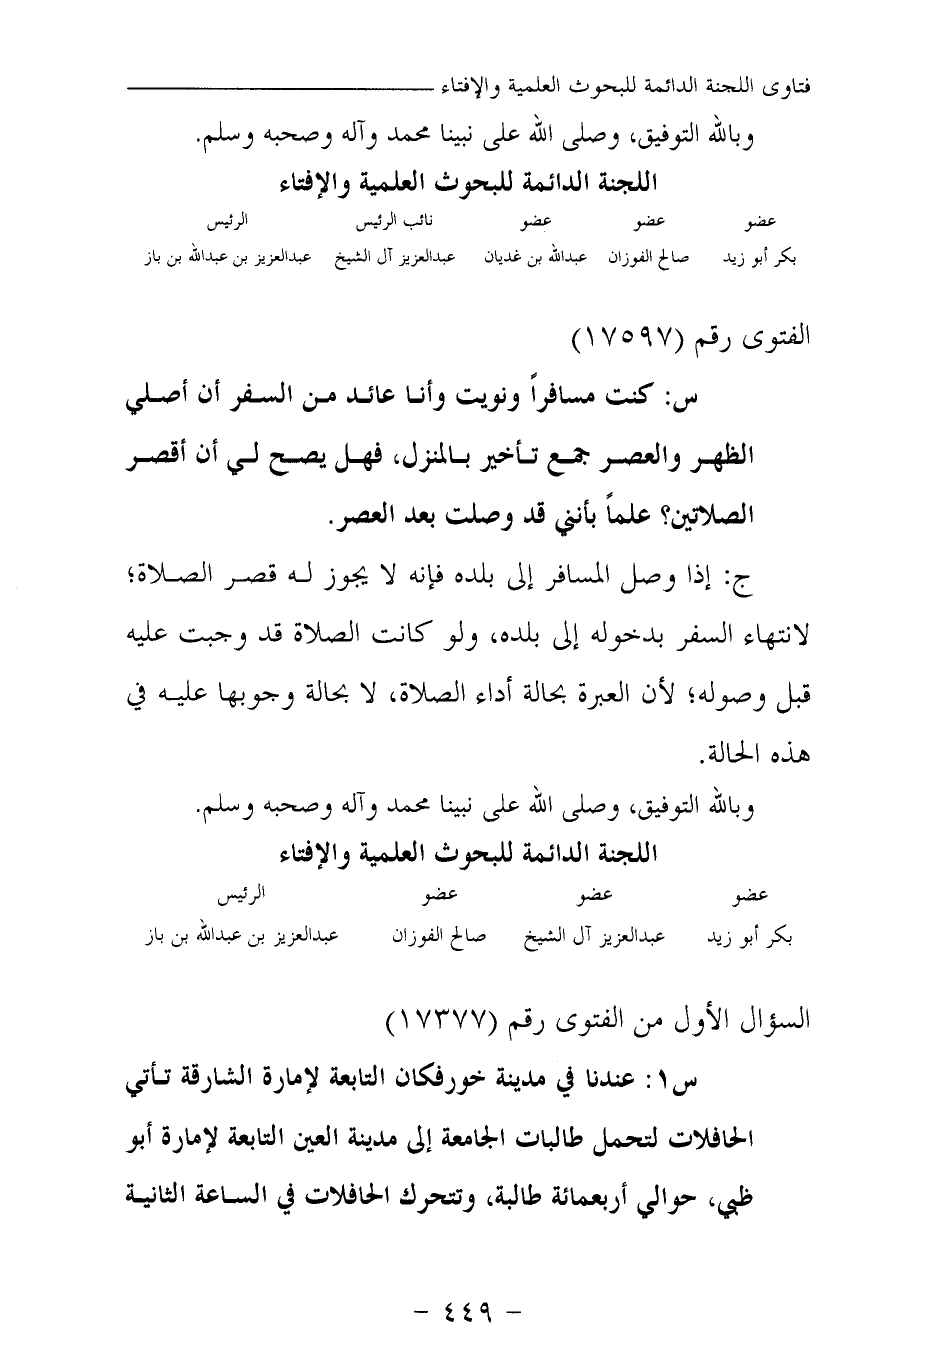 فتاوى اللجنة الدائمة للبحوث العلمية والإفتاء
وبالله التوفيق، وصلى الله على نبينا محمد وآله وصحبه وسلم.
اللجنة الدائمة للبحوث العلمية والإفتاء
عضو عضو عضو نائب الرئيس الرئيس
بكر أبو زيد صالح الفوزان عبدالله بن غديان عبدالعزيز آل الشيخ عبدالعزيز بن عبدالله بن باز
الفتوى رقم (١٧٥٩٧)
س: كنت مسافراً ونويت وأنا عائد من السفر أن أصلي
الظهر والعصر جمع تأخير بالمنزل، فهل يصح لي أن أقصر
الصلاتين؟ علماً بأنني قد وصلت بعد العصر.
ج: إذا وصل المسافر إلى بلده فإنه لا يجوز له قصر الصلاة؛
لانتهاء السفر بدخوله إلى بلده، ولو كانت الصلاة قد وجبت عليه
قبل وصوله؛ لأن العبرة بحالة أداء الصلاة، لا بحالة وجوبها عليه في
هذه الحالة.
وبالله التوفيق، وصلى الله على نبينا محمد وآله وصحبه وسلم.
اللجنة الدائمة للبحوث العلمية والإفتاء
عضو عضو عضو الرئيس
بكر أبو زيد عبدالعزيز آل الشيخ صالح الفوزان عبدالعزيز بن عبدالله بن باز
السؤال الأول من الفتوى رقم (١٧٣٧٧)
س١: عندنا في مدينة خورفكان التابعة لإمارة الشارقة تأتي
الحافلات لتحمل طالبات الجامعة إلى مدينة العين التابعة لإمارة أبو
ظبي، حوالي أربعمائة طالبة، وتتحرك الحافلات في الساعة الثانية
- ٤٤٩ -